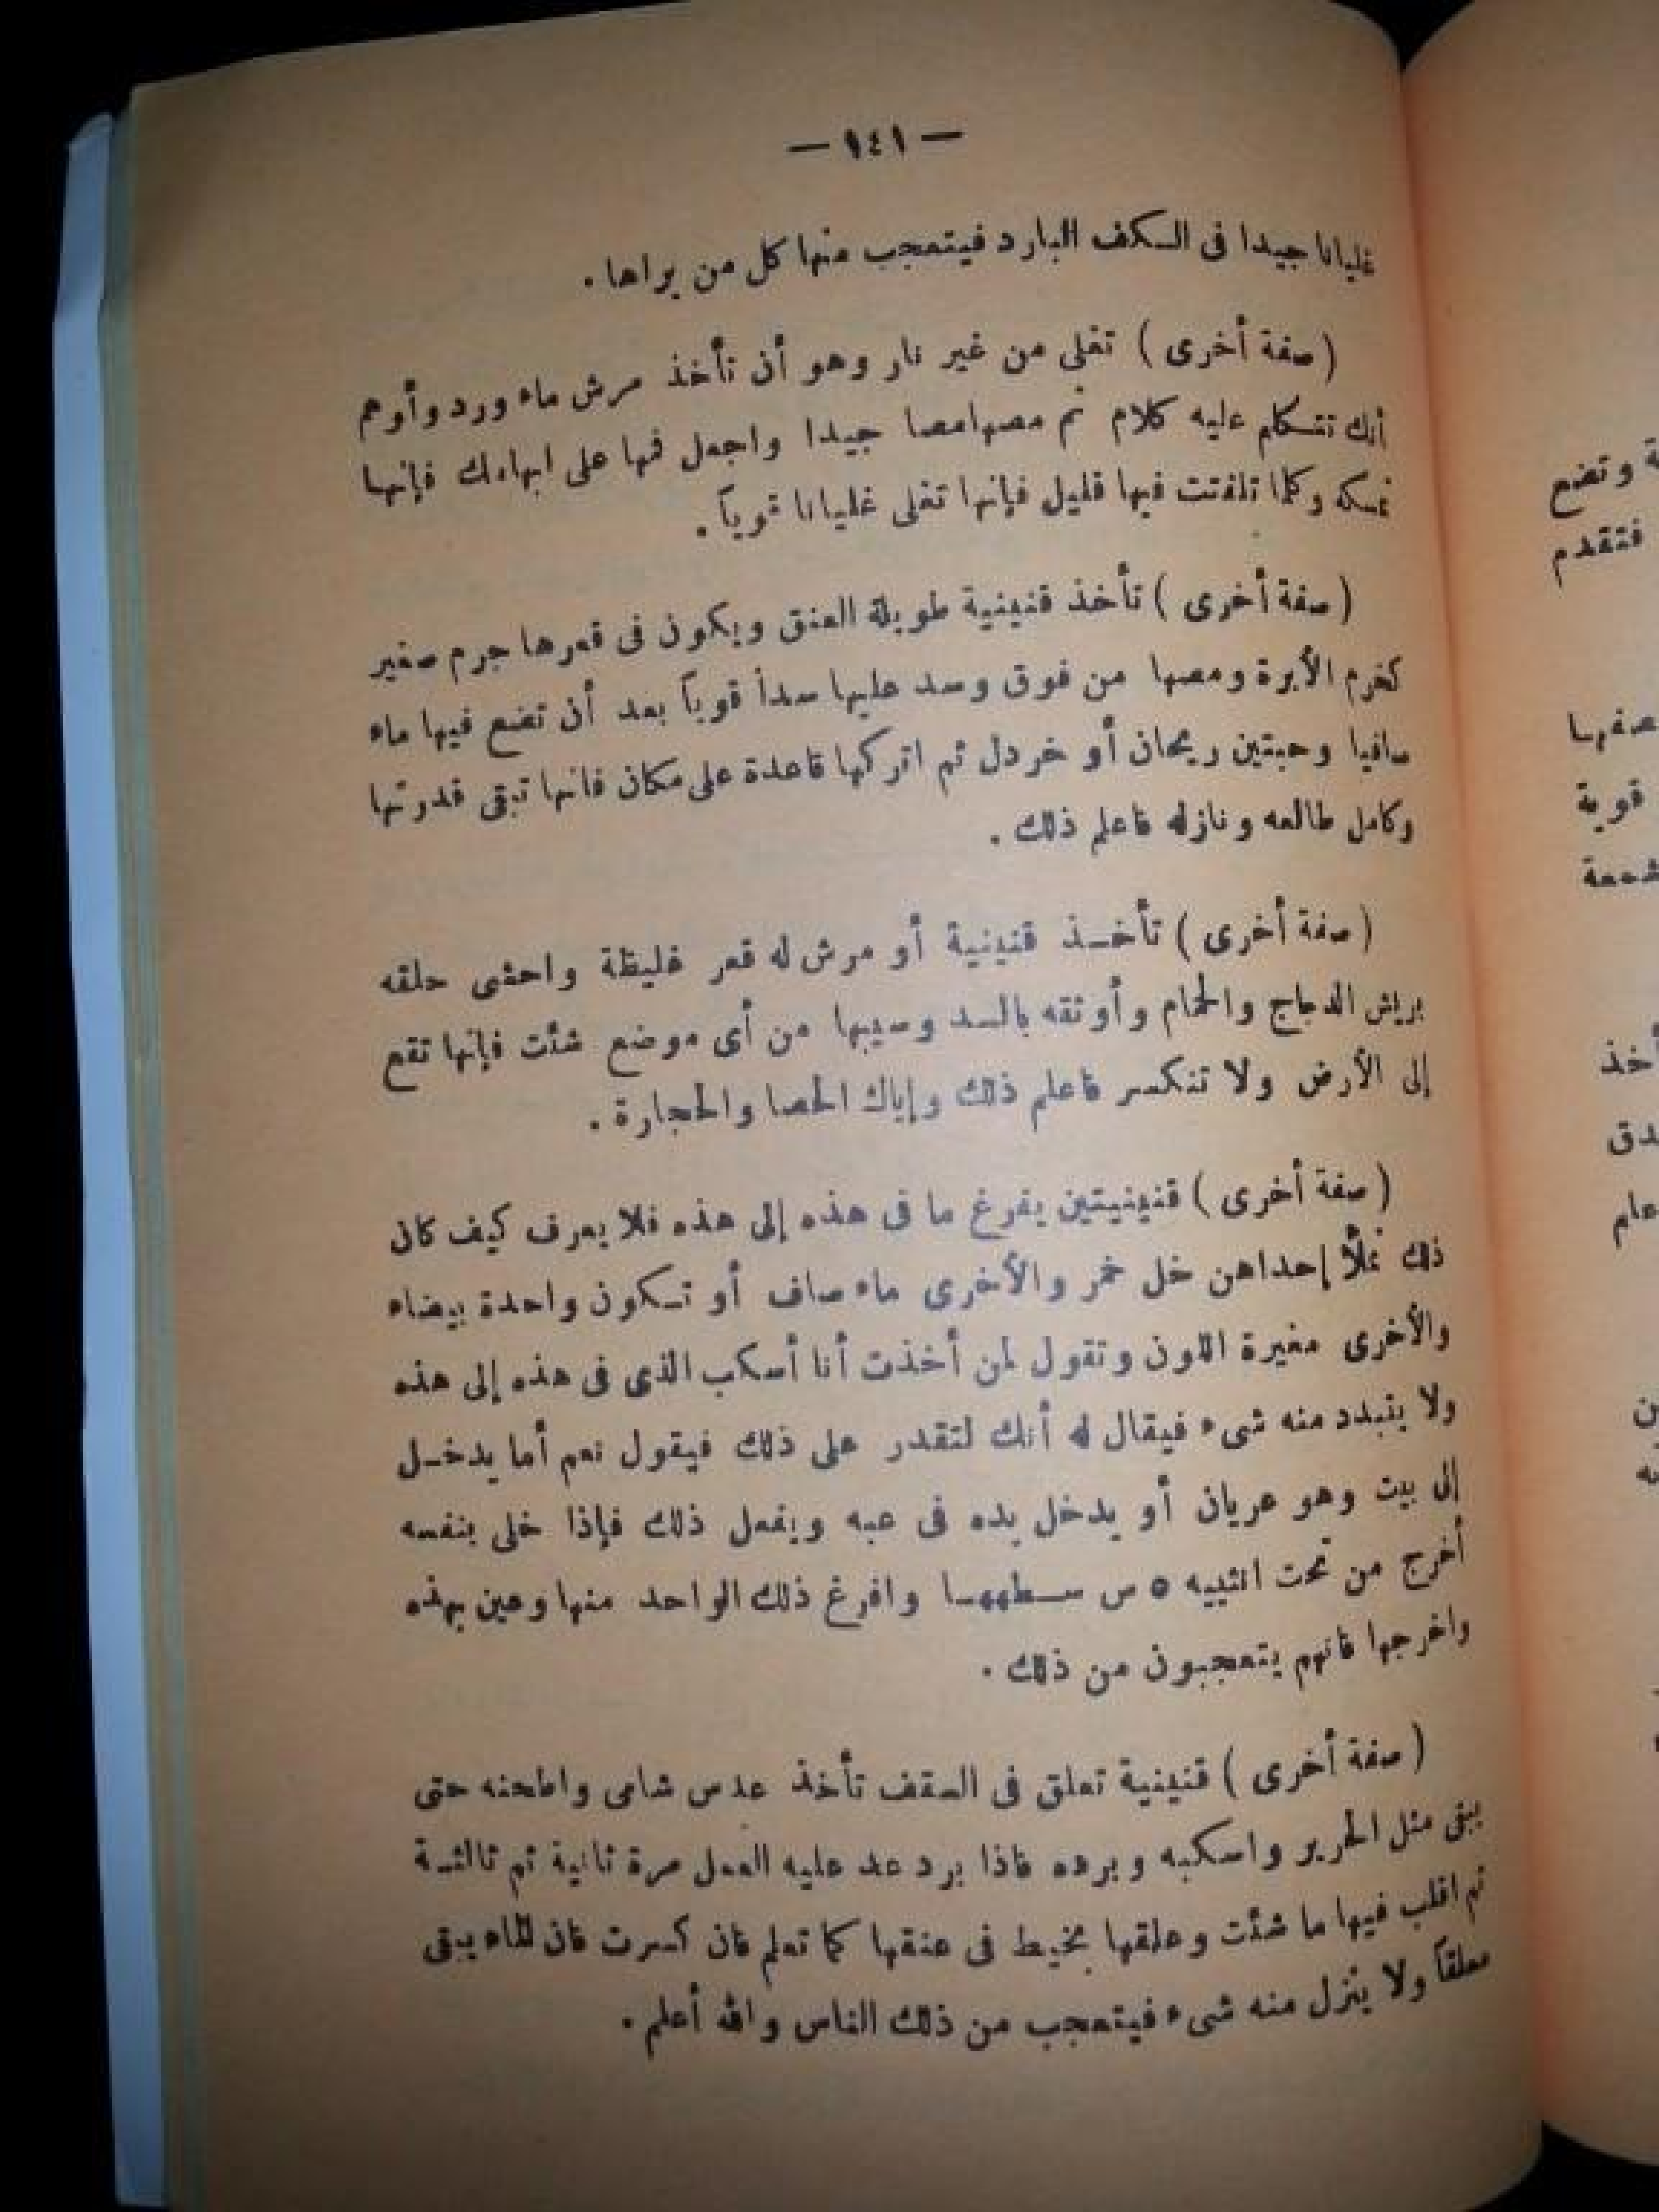 — ١٤١ —
غليانا جيدا فى الكف البارد فيتعجب منها كل من يراها .
( صفة أخرى ) تغلى من غير نار وهو أن تأخذ مرش ماء ورد وأوهم
أنك تتكلم عليه كلام ثم مصها مصا جيدا واجعل فمها على ابهامك فإنها
تمسكه وكلما تلفتت فيها قليل فإنها تغلى غليانا قوياً .
( صفة أخرى ) تأخذ قنينية طويلة العنق ويكون فى قعرها جرم صغير
كخرم الأبرة ومصها من فوق وسد عليها سداً قوياً بعد أن تضع فيها ماء
صافيا وحبتين ريحان أو خردل ثم اتركها قاعدة على مكان فانها تبقى قدرتها
وكامل طالعه ونازله فاعلم ذلك .
( صفة أخرى ) تأخذ قنينية أو مرش له قعر غليظة واحشى حلقه
بريش الدجاج والحمام وأوثقه بالسد وسيبها من أى موضع شئت فإنها تقع
إلى الأرض ولا تنكسر فاعلم ذلك وإياك الحصا والحجارة .
( صفة أخرى ) قنينيتين يفرغ ما فى هذه إلى هذه فلا يعرف كيف كان
ذلك تملأ إحداهن خل خمر والأخرى ماء صاف أو تكون واحدة بيضاء
والأخرى مغيرة اللون وتقول لمن أخذت أنا أسكب الذى فى هذه إلى هذه
ولا يتبدد منه شىء فيقال له أنك لتقدر على ذلك فيقول نعم أما يدخل
إلى بيت وهو عريان أو يدخل يده فى عبه ويفعل ذلك فإذا خلى بنفسه
أخرج من تحت انثييه ٥ س سطهها وافرغ ذلك الواحد منها وعين بهذه
واخرجها فانهم يتعجبون من ذلك .
( صفة أخرى ) قنينية تعلق فى السقف تأخذ عدس شامى واطحنه حتى
يبقى مثل الحرير واسكبه وبرده فاذا برد عد عليه العمل مرة ثانية ثم ثالثة
ثم اقلب فيها ما شئت وعلقها بخيط فى عنقها كما تعلم فان كسرت فان الماء يبقى
معلقاً ولا ينزل منه شىء فيتعجب من ذلك الناس والله أعلم .
ة وتضع
فتقدم
صفها
قوية
شمعة
أخذ
دق